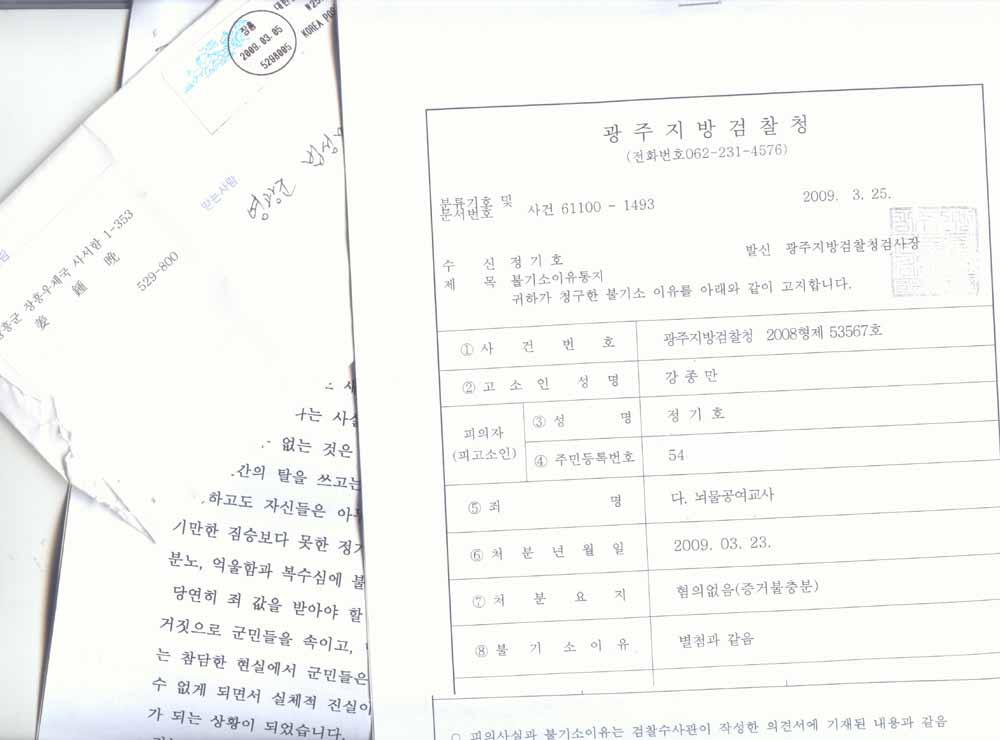 장흥
2009.03.05
5298005
KOREA
받는사람
영광군
장흥군 장흥우체국 사서함 1-353
姜 鍾 晩
529-800
는 사실
없는 것은
간의 탈을 쓰고는
하고도 자신들은 아무
기만한 짐승보다 못한 정기
분노, 억울함과 복수심에 불
당연히 죄 값을 받아야 할
거짓으로 군민들을 속이고,
는 참담한 현실에서 군민들은
수 없게 되면서 실체적 진실이
가 되는 상황이 되었습니다.
광 주 지 방 검 찰 청
(전화번호062-231-4576)
분류기호 및
문서번호 사건 61100 - 1493 2009. 3. 25.
수 신 정 기 호 발신 광주지방검찰청검사장
제 목 불기소이유통지
귀하가 청구한 불기소 이유를 아래와 같이 고지합니다.
① 사 건 번 호 광주지방검찰청 2008형제 53567호
② 고 소 인 성 명 강 종 만
피의자
(피고소인)
③ 성 명 정 기 호
④ 주민등록번호 54
⑤ 죄 명 다. 뇌물공여교사
⑥ 처 분 년 월 일 2009. 03. 23.
⑦ 처 분 요 지 혐의없음(증거불충분)
⑧ 불 기 소 이 유 별첨과 같음
○ 피의사실과 불기소이유는 검찰수사관이 작성한 의견서에 기재된 내용과 같음